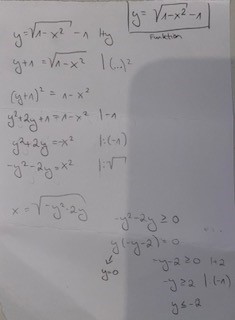 y = √1-x² - 1
Funktion
y = √1-x² - 1 | +y
y+1 = √1-x² | (...)²
(y+1)² = 1-x²
y²+2y+1 = 1-x² | -1
y²+2y = -x² | ·(-1)
-y²-2y = x² | √
x = √-y²-2y
-y²-2y ≥ 0
y(-y-2) = 0
y=0
-y-2 ≥ 0 | +2
-y ≥ 2 | ·(-1)
y ≤ -2